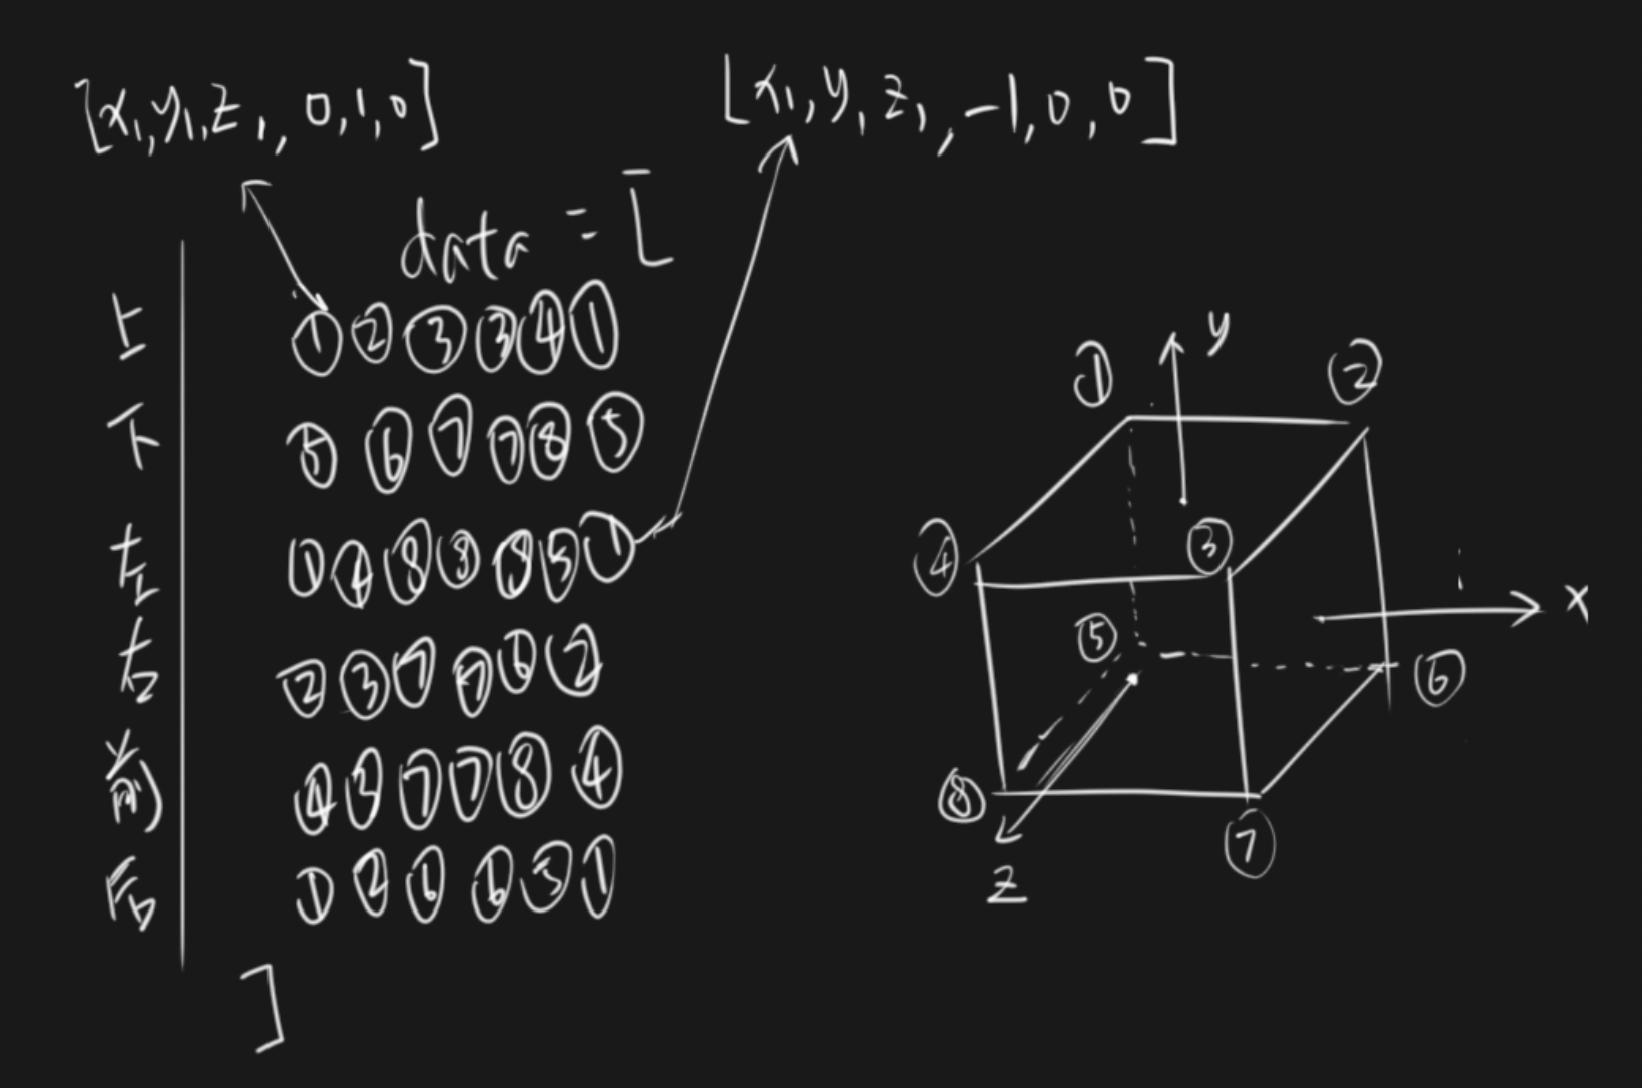 [x₁,y₁,z₁, 0,1,0]
[x₁,y,z₁, -1,0,0]
data = [
上 ① ② ③ ③ ④ ①
下 ⑤ ⑥ ⑦ ⑦ ⑧ ⑤
左 ① ④ ⑧ ⑧ ⑤ ①
右 ② ③ ⑦ ⑦ ⑥ ②
前 ④ ③ ⑦ ⑦ ⑧ ④
后 ① ② ⑥ ⑥ ⑤ ①
]
y
① ②
④ ③
x
⑤ ⑥
⑧ ⑦
z